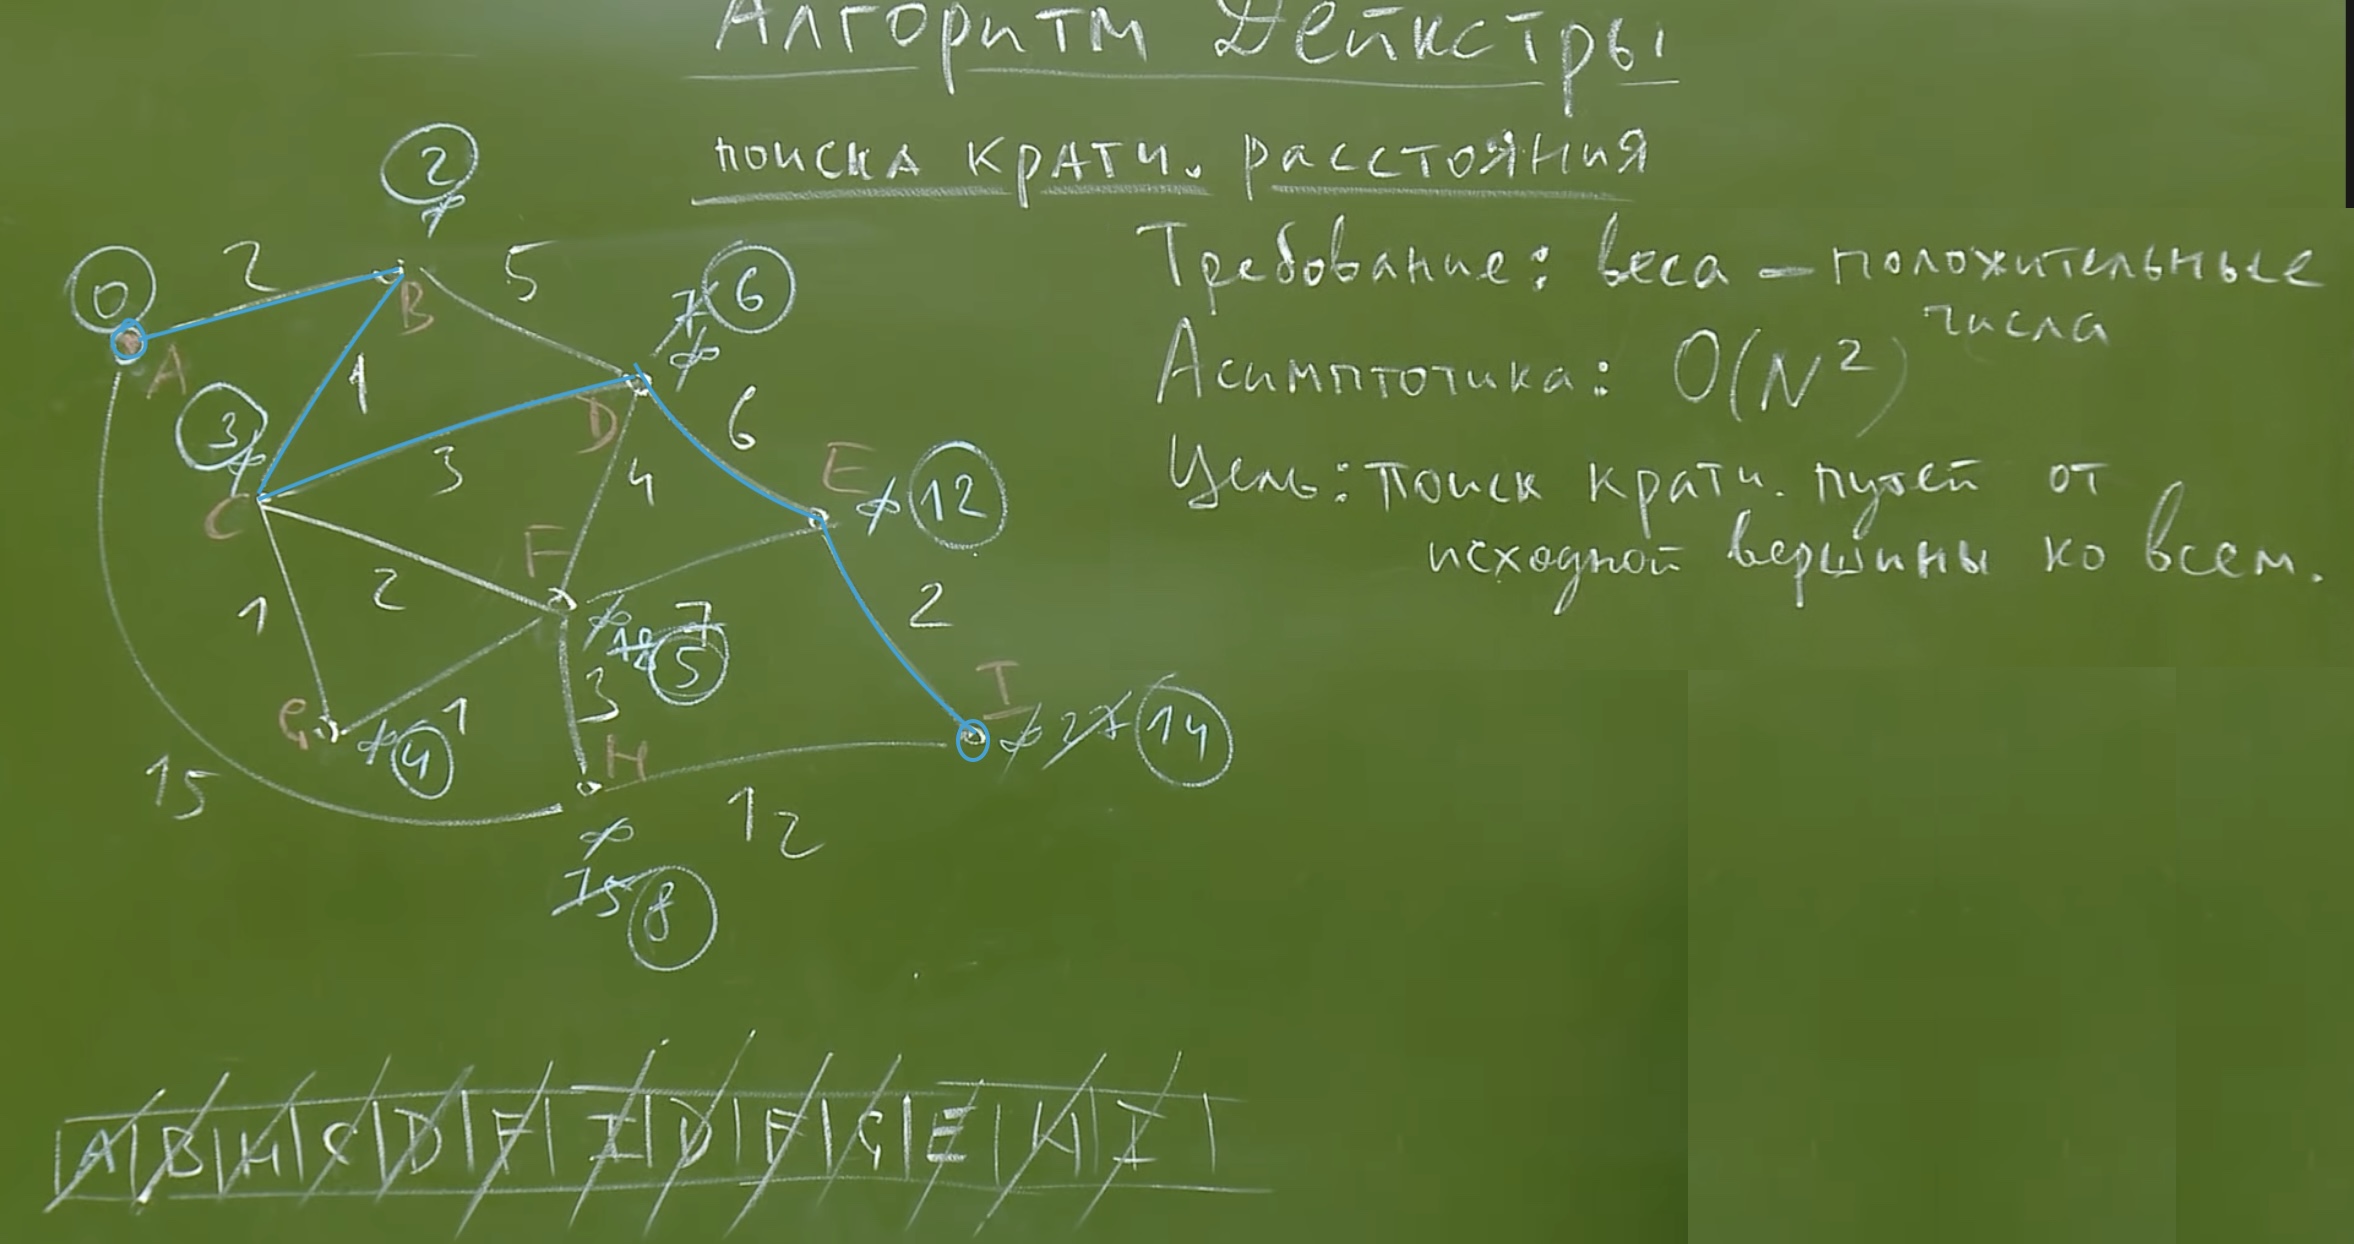 Алгоритм Дейкстры
поиска кратч. расстояния
Требование: веса – положительные
числа
Асимптотика: O(N²)
Цель: поиск кратч. путей от
исходной вершины ко всем.
2
∞
0
2
5
7
6
∞
B
A
1
3
∞
D
6
3
4
E
∞
12
C
F
2
1
2
∞
7
18
5
I
3
G
1
∞
4
H
∞
27
14
15
12
∞
15
8
A B H C D F I D F G E H I